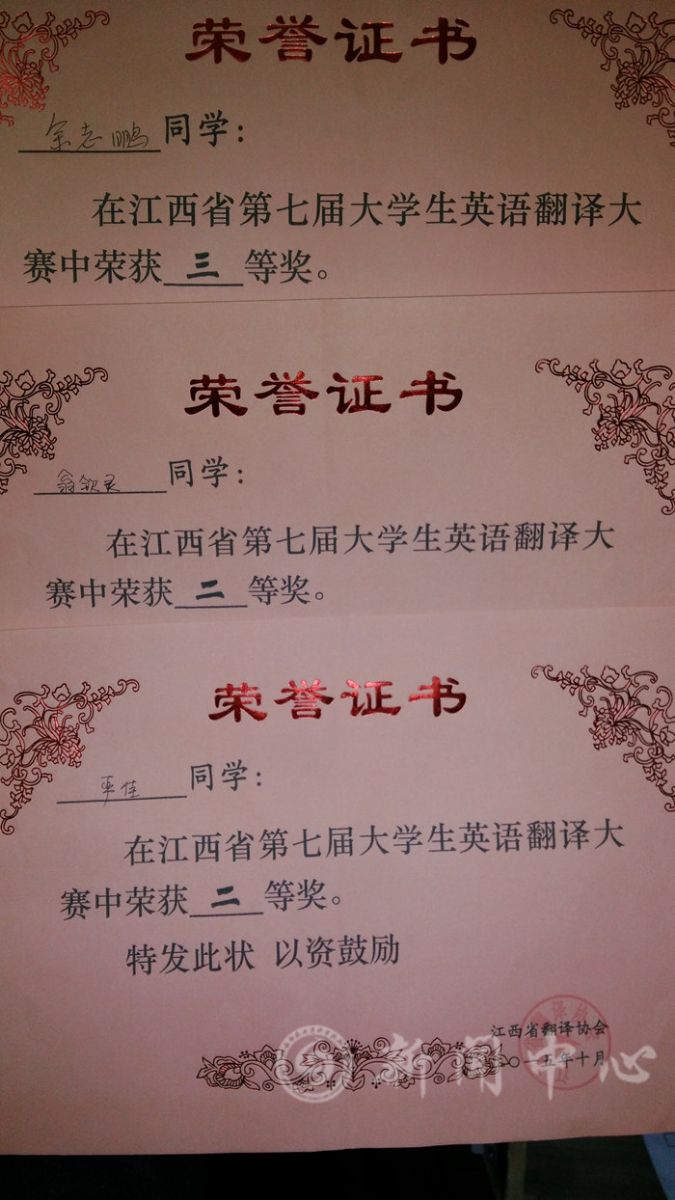 荣誉证书
余志鹏同学：
在江西省第七届大学生英语翻译大
赛中荣获三等奖。
荣誉证书
翁钦灵同学：
在江西省第七届大学生英语翻译大
赛中荣获二等奖。
荣誉证书
佳同学：
在江西省第七届大学生英语翻译大
赛中荣获二等奖。
特发此状 以资鼓励
江西省翻译协会
二〇一五年十月
新闻中心